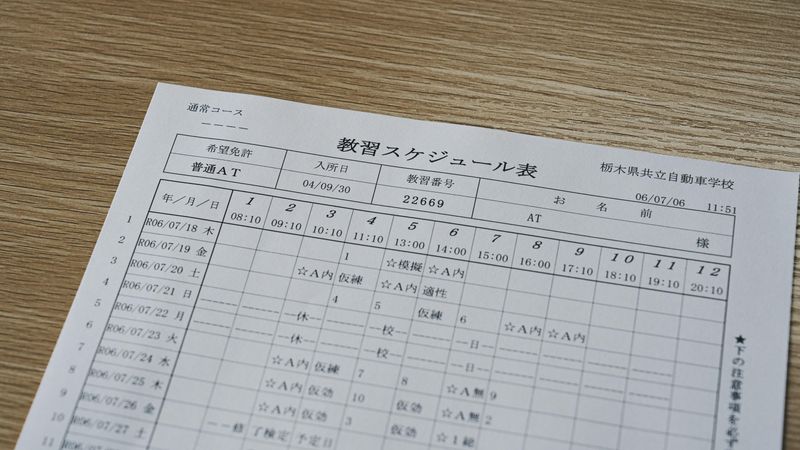 通常コース
－－－－
教習スケジュール表
栃木県共立自動車学校
希望免許 入所日 教習番号 お名前
06/07/06 11:51
普通AT 04/09/30 22669 AT 様
年／月／日 1 2 3 4 5 6 7 8 9 10 11 12
08:10 09:10 10:10 11:10 13:00 14:00 15:00 16:00 17:10 18:10 19:10 20:10
1 R06/07/18 木
2 R06/07/19 金 1 ☆模擬 ☆A内
3 R06/07/20 土 ☆A内 仮練 ☆A内 適性
4 R06/07/21 日 4 5 仮練 6 ☆A内 ☆A内
5 R06/07/22 月 休 校 日
6 R06/07/23 火 休 校 日
7 R06/07/24 水 ☆A内 仮練 7
8 R06/07/25 木 ☆A内 仮効 8 ☆A無 9
9 R06/07/26 金 ☆A内 仮効 10 仮効 ☆A無 2
10 R06/07/27 土 修了検定 予定日 3 仮効 ☆1総
11
★下の注意事項を必ず